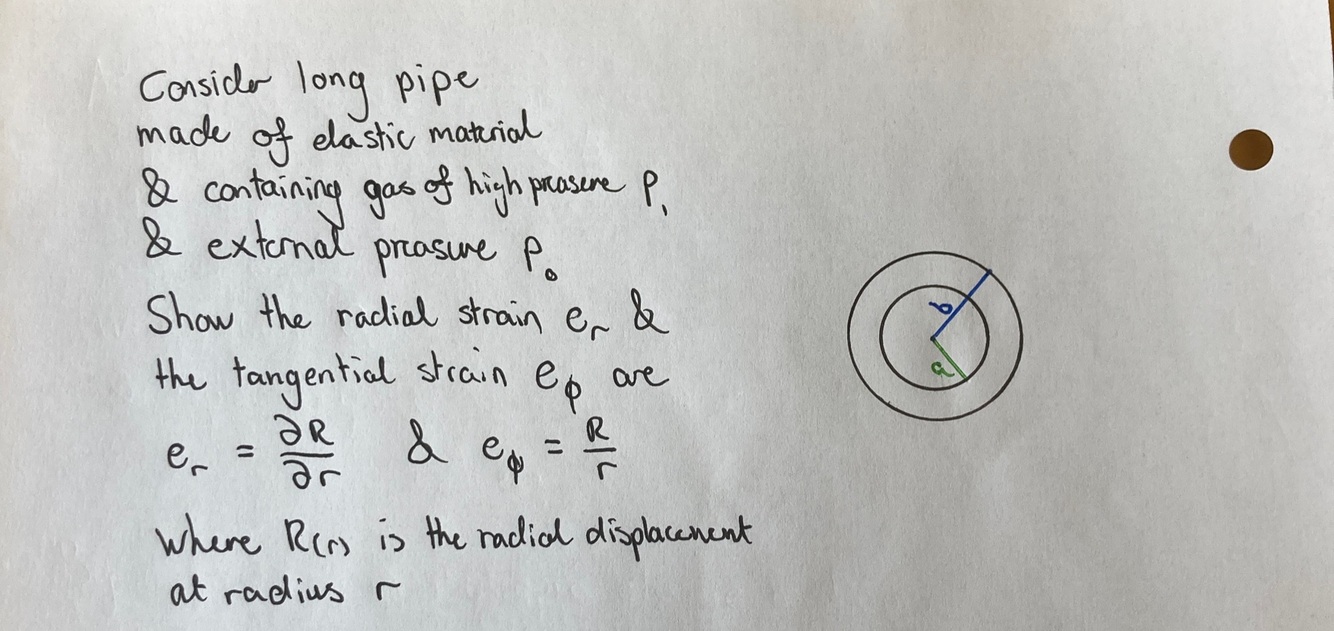 Consider long pipe
made of elastic material
& containing gas of high pressure P₁
& external pressure P₀
Show the radial strain eᵣ &
the tangential strain e_ϕ are
eᵣ = ∂R/∂r & e_ϕ = R/r
where R(r) is the radial displacement
at radius r
b
a